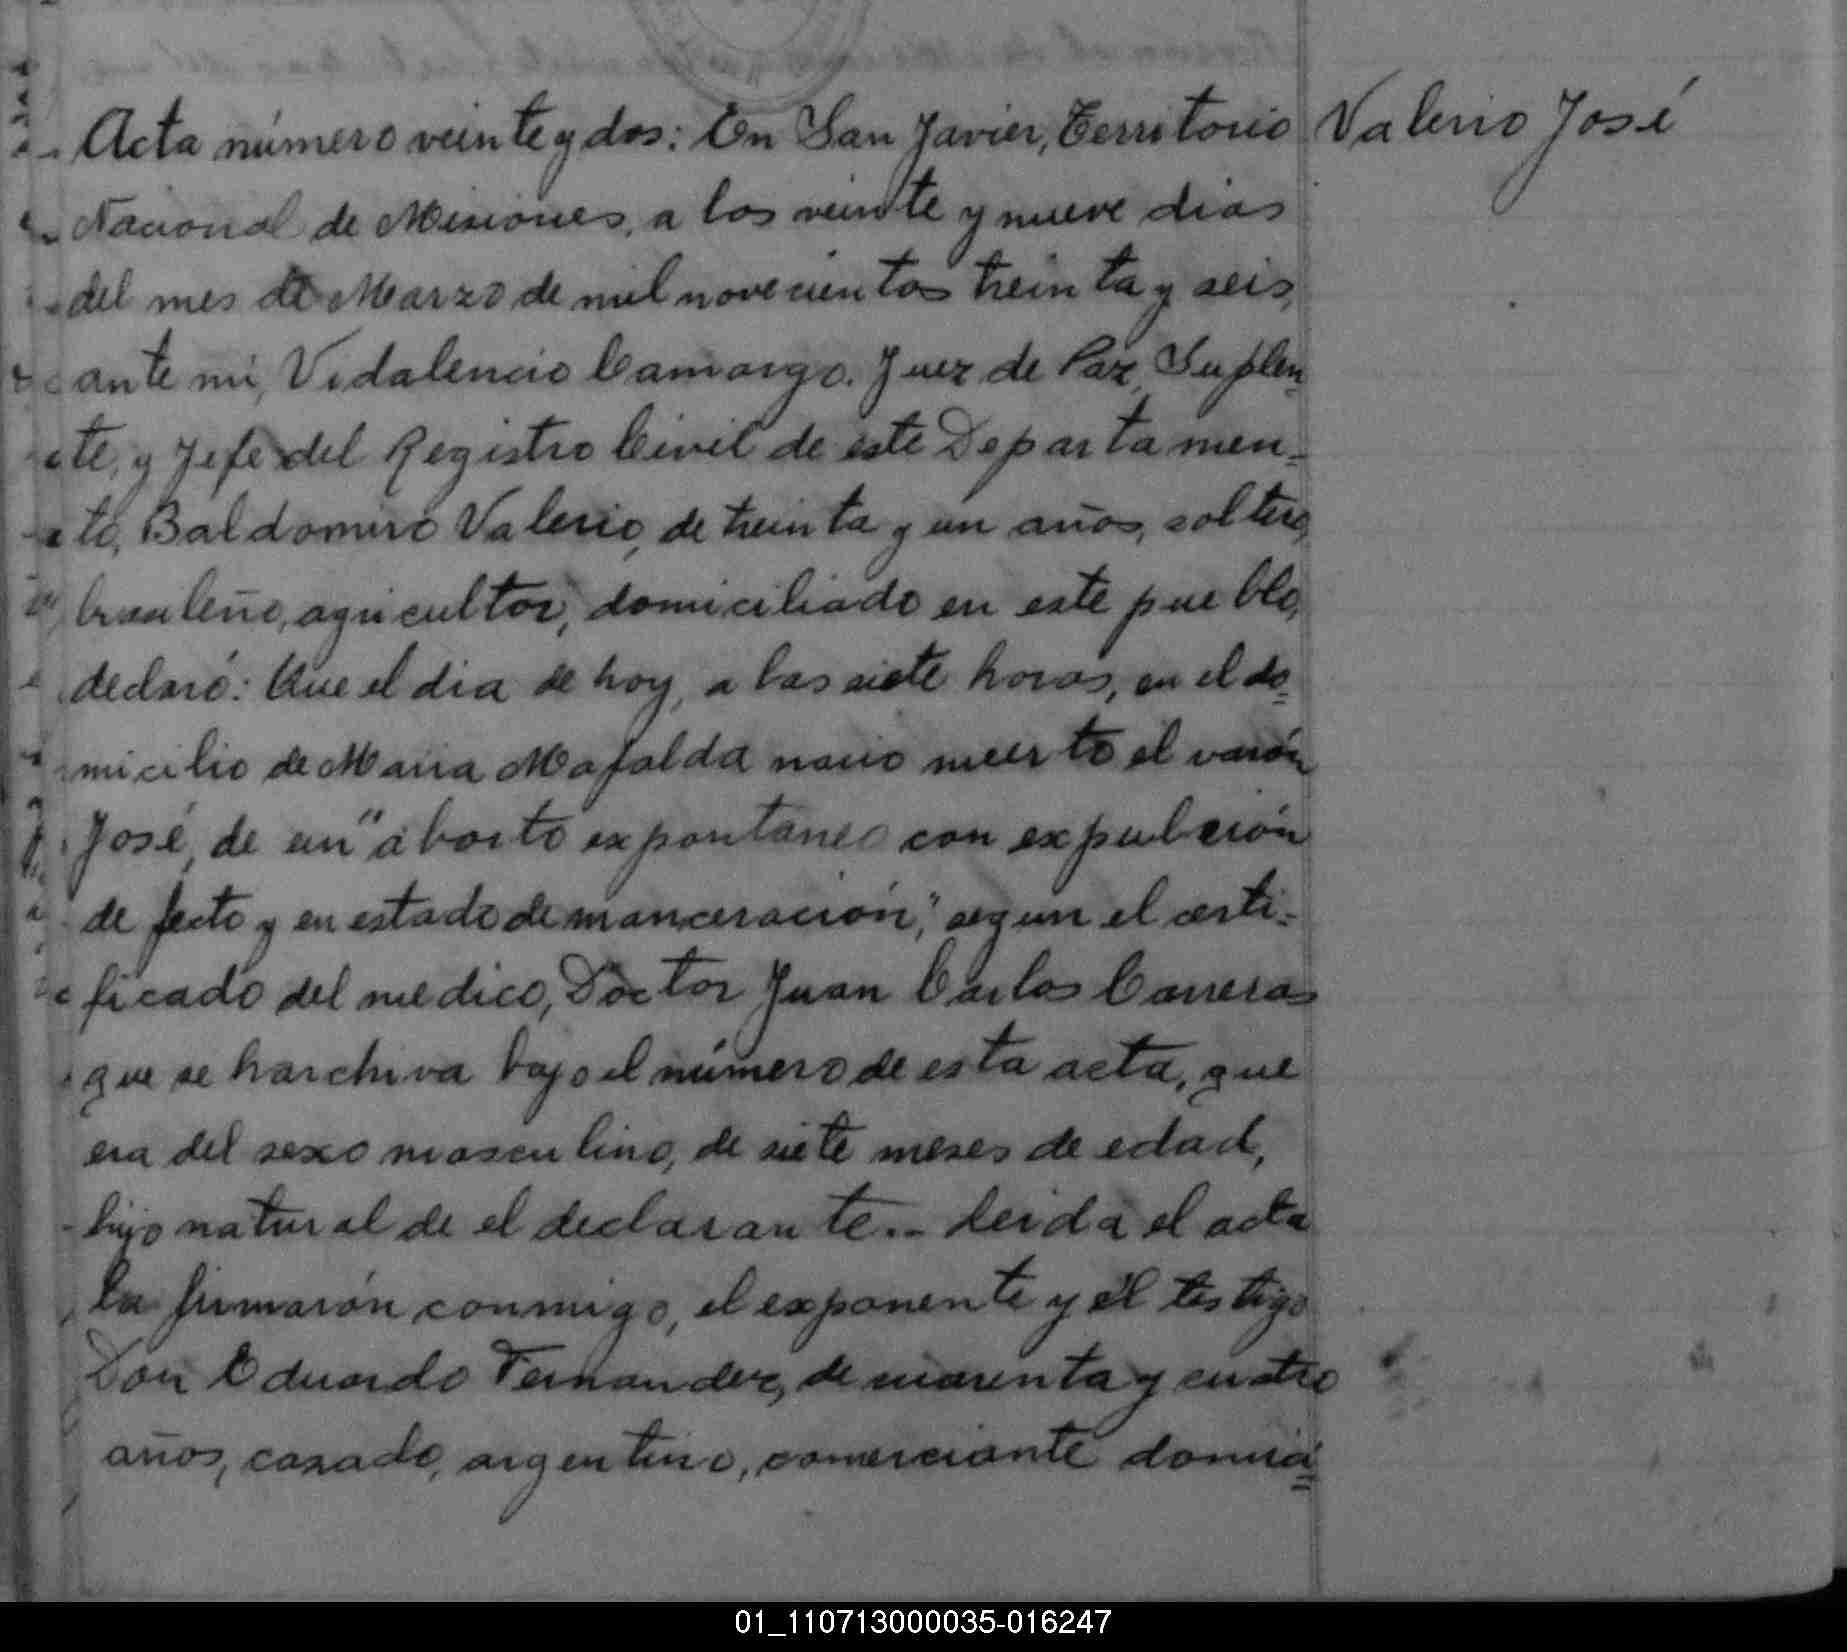 Acta número veinte y dos: En San Javier, Territorio
Valerio José
Nacional de Misiones, a los veinte y nueve dias
del mes de Marzo de mil novecientos treinta y seis,
ante mi, Vidalencio Camargo. Juez de Paz, Suplen-
te, y Jefe del Registro Civil de este Departamen-
to, Baldomero Valerio, de treinta y un años, soltero,
brasileño, agricultor, domiciliado en este pueblo,
declaró: Que el dia de hoy, a las siete horas, en el do-
micilio de Maria Mafalda nacio muerto el varón
José, de un "aborto expontaneo con expulción
de fecto y en estado de manceración", segun el certi-
ficado del medico, Doctor Juan Carlos Carreras
que se harchiva bajo el número de esta acta, que
era del sexo masculino, de siete meses de edad,
hijo natural de el declarante.- Leida el acta
la firmarón conmigo, el exponente y él testigo
Don Eduardo Fernandez, de cuarenta y cuatro
años, casado, argentino, comerciante domici-
01_110713000035-016247